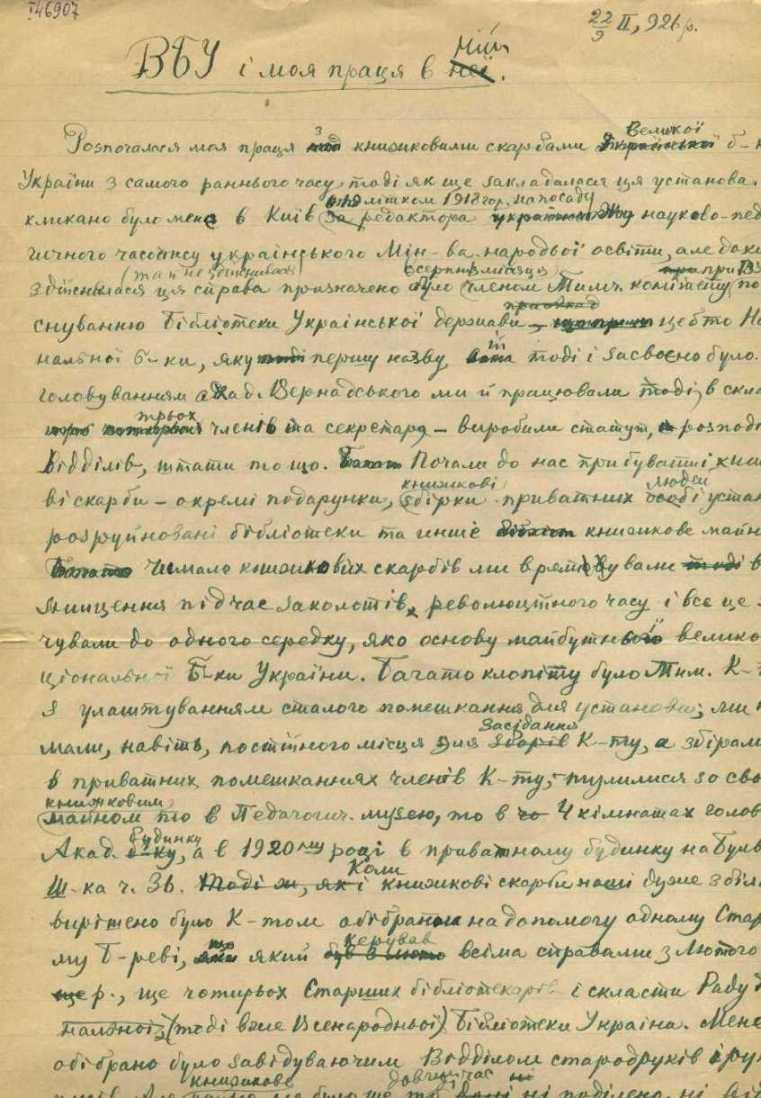 146907
22/9 II, 926 р.
ВБУ і моя праця в ній.
Розпочалася моя праця з книжковими скарбами Великої б-к
України з самого раннього часу, тоді як ще закладалася ця установа.
кликано було мене в Київ літком 1918 гор. на посаду редактора науково-педа
гичного часопису українського Мін-ва народньої освіти, але доки
здійснилася ця справа (та й не здійснилася) призначено було серпня місяця членом Тимч. комітету по
снуванню Бібліотеки Української держави, це бто На
нальної б-ки, яку першу назву тоді і засвоєно було.
головуванням акад. Вернадського ми й працювали тоді, в скла
трьох членів та секретаря – виробили статут, розподі
відділів, штати то що. Почали до нас прибувати книж
ві скарби – окремі подарунки, книжкові збірки приватних людей і устан
розруйновані бібліотеки та инше книжкове майно
Чимало книжкових скарбів ми врятовували в
знищення підчас заколотів революційного часу і все це
чували до одного середку, яко основу майбутньої велико
ціональної Б-ки України. Багато клопіту було Тим. К-
з улаштуванням сталого помешкання для установи; ми
мали, навіть, постійного місця для Засідання К-ту, а збірали
в приватних помешканнях членів К-ту; тулилися зо сво
книжковим майном то в Педагогич. музею, то в 4 кімнатах голов
Акад. будинку, а в 1920 му році в приватному будинку на Буль
Ш-ка ч. 36. Коли книжкові скарби наші дуже збіль
вирішено було К-том обібрати на допомогу одному Стар
му Б-реві, який керував всіма справами з Лютого
р., ще чотирьох Старших бібліотекарів і скласти Раду
(тоді вже Всенародньої) Бібліотеки України. Мене
обібрано було завідуваючим Відділом стародруків і рук
книжкове довший час ні поділено, ні